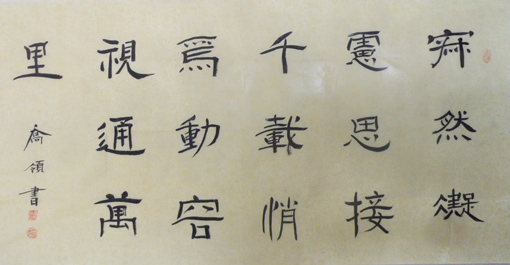 寂然凝
慮思接
千載悄
焉動容
視通萬
里
喬領書